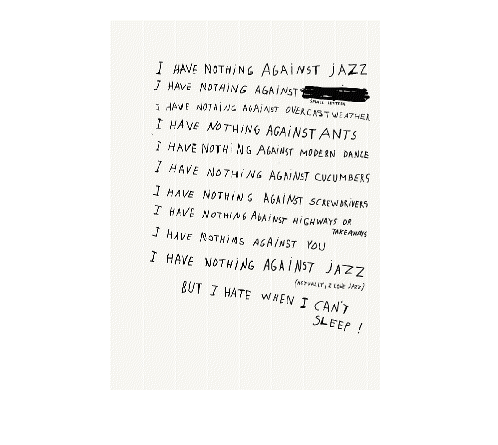 I HAVE NOTHING AGAINST JAZZ
I HAVE NOTHING AGAINST
SMALL LETTERS
I HAVE NOTHING AGAINST OVERCAST WEATHER
I HAVE NOTHING AGAINST ANTS
I HAVE NOTHING AGAINST MODERN DANCE
I HAVE NOTHING AGAINST CUCUMBERS
I HAVE NOTHING AGAINST SCREWDRIVERS
I HAVE NOTHING AGAINST HIGHWAYS OR
TAKEAWAYS
I HAVE NOTHING AGAINST YOU
I HAVE NOTHING AGAINST JAZZ
(ACTUALLY, I LOVE JAZZ)
BUT I HATE WHEN I CAN'T
SLEEP !